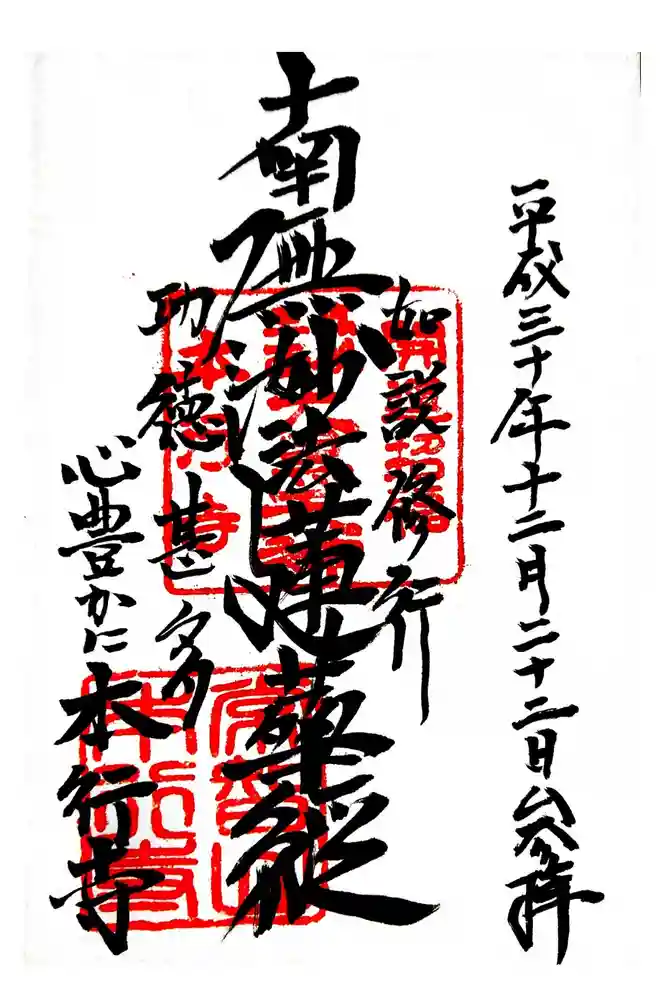 平成三十年十二月二十二日 参拝
如説修行
南無妙法蓮華経
功徳甚多
心豊かに 本行寺
本行寺